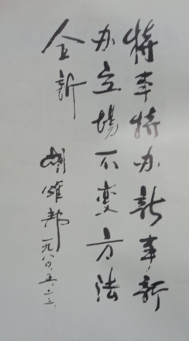 特事特办新事新
办立场不变方法
全新
胡耀邦
一九八四、五、二二、